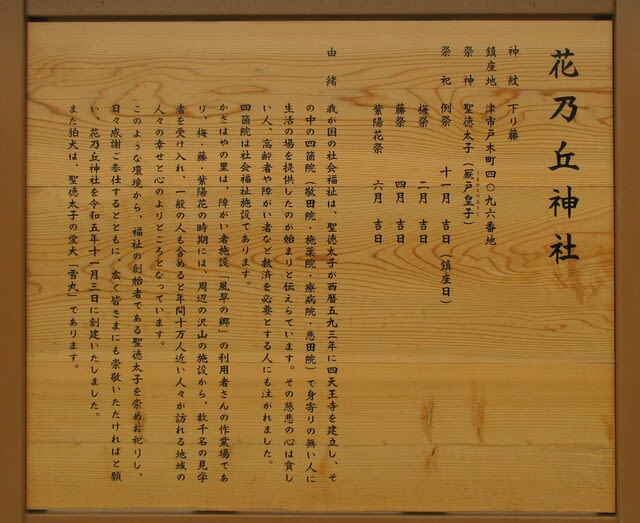 花乃丘神社
神紋 下り藤
鎮座地 津市戸木町四〇九六番地
祭神 聖徳太子(厩戸皇子)
祭祀 例祭 十一月 吉日(鎮座日)
梅祭 二月 吉日
藤祭 四月 吉日
紫陽花祭 六月 吉日
由緒 我が国の社会福祉は、聖徳太子が西暦五九三年に四天王寺を建立し、そ
の中の四箇院(敬田院・施薬院・療病院・悲田院)で身寄りの無い人に
生活の場を提供したのが始まりと伝えらています。その慈悲の心は貧し
い人、高齢者や障がい者など救済を必要とする人にも注がれました。
四箇院は社会福祉施設であります。
かざはやの里は、障がい者施設「風早の郷」の利用者さんの作業場であ
り、梅・藤・紫陽花の時期には、周辺の沢山の施設から、数千名の見学
者を受け入れ、一般の人も含めると年間十万人近い人々が訪れる地域の
人々の幸せと心のよりどころとなっています。
このような環境から、福祉の創始者である聖徳太子を崇めお祀りし、
日々感謝ご奉仕するとともに、広く皆さまにも崇敬いただければと願
い、花乃丘神社を令和五年十一月三日に創建いたしました。
また狛犬は、聖徳太子の愛犬「雪丸」であります。